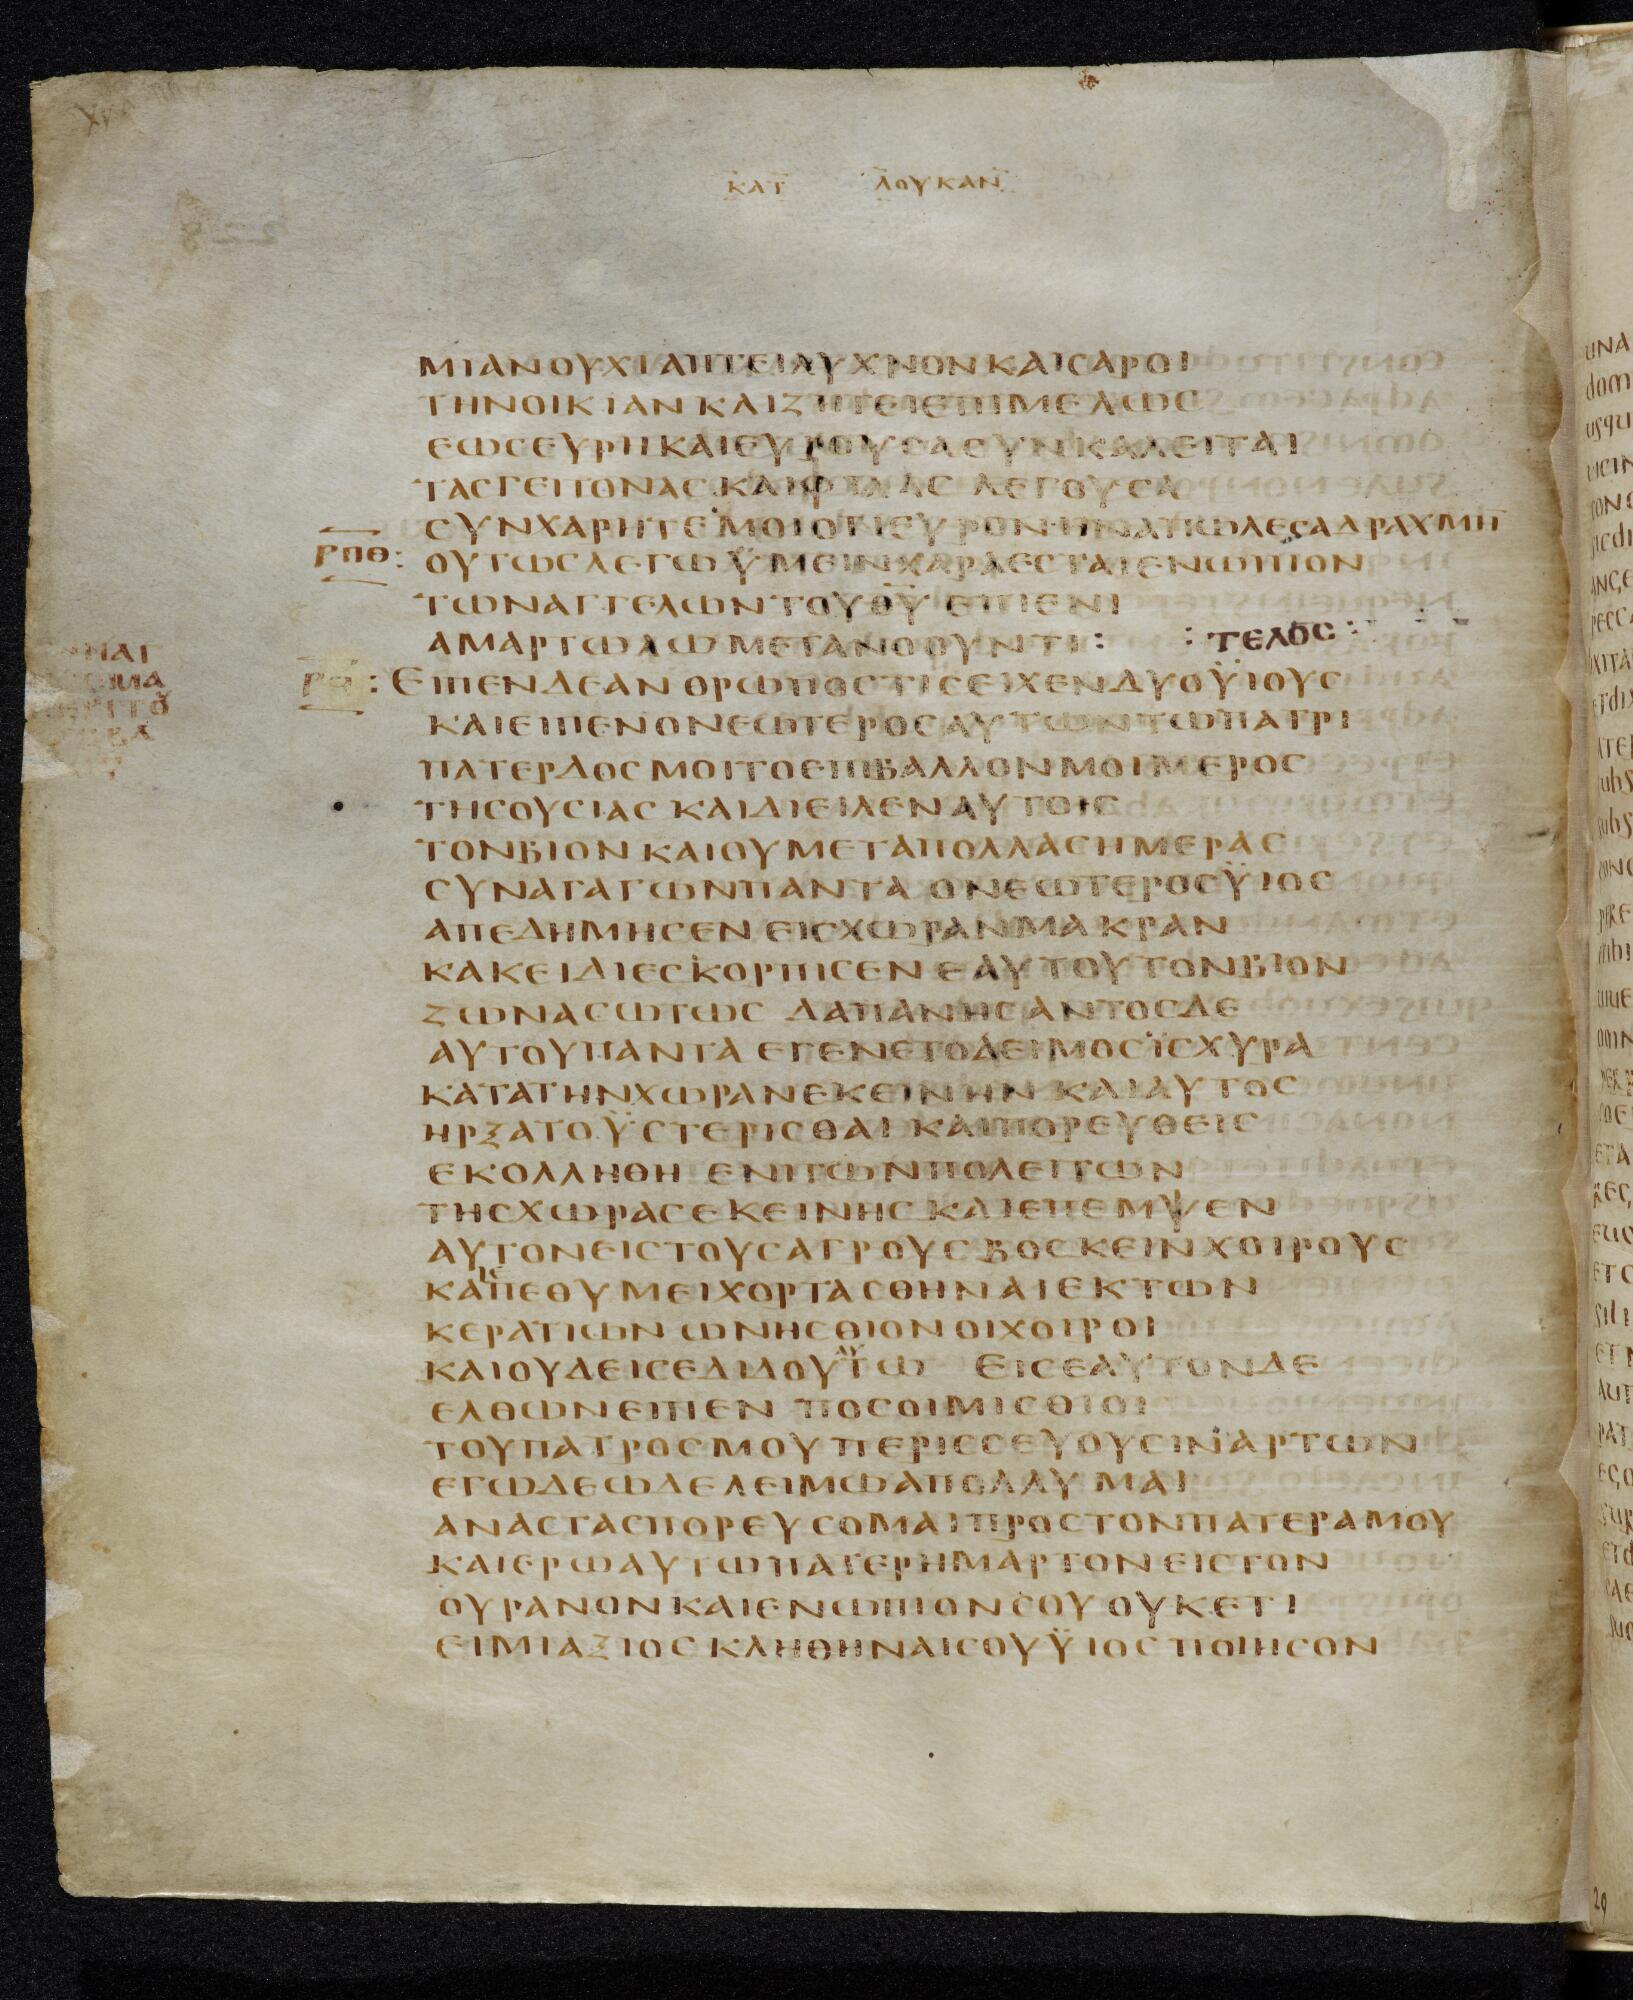 ΚΑΤ ΛΟΥΚΑΝ
ΜΙΑΝΟΥΧΙΑΠΤΕΙΛΥΧΝΟΝΚΑΙCΑΡΟΙ
ΤΗΝΟΙΚΙΑΝΚΑΙΖΗΤΕΙΕΠΙΜΕΛΩC
ΕΩCΕΥΡΗΚΑΙΕΥΡΟΥCΑCΥΝΚΑΛΕΙΤΑΙ
ΤΑCΓΕΙΤΟΝΑCΚΑΙΦΙΛΑC ΛΕΓΟΥCΑ
CΥΝΧΑΡΗΤΕΜΟΙΟΤΙΕΥΡΟΝ·ΗΝΑΠΩΛΕCΑΔΡΑΧΜΗ̅
ΡΠΘ: ΟΥΤΩCΛΕΓΩΫΜΕΙΝΧΑΡΑΕCΤΑΙΕΝΩΠΙΟΝ
ΤΩΝΑΓΓΕΛΩΝΤΟΥΘ̅Υ̅ ΕΠΙΕΝΙ
ΑΜΑΡΤΩΛΩΜΕΤΑΝΟΟΥΝΤΙ: :ΤΕΛΟC:
ΕΙΠΕΝΔΕΑΝΘΡΩΠΟCΤΙCΕΙΧΕΝΔΥΟΫΙΟΥC
ΚΑΙΕΙΠΕΝΟΝΕΩΤΕΡΟCΑΥΤΩΝΤΩΠΑΤΡΙ
ΠΑΤΕΡΔΟCΜΟΙΤΟΕΠΙΒΑΛΛΟΝΜΟΙΜΕΡΟC
ΤΗCΟΥCΙΑC ΚΑΙΔΙΕΙΛΕΝΑΥΤΟΙC
ΤΟΝΒΙΟΝΚΑΙΟΥΜΕΤΑΠΟΛΛΑCΗΜΕΡΑC
CΥΝΑΓΑΓΩΝΠΑΝΤΑ ΟΝΕΩΤΕΡΟCΫΙΟC
ΑΠΕΔΗΜΗCΕΝ ΕΙCΧΩΡΑΝΜΑΚΡΑΝ
ΚΑΚΕΙΔΙΕCΚΟΡΠΙCΕΝ ΕΑΥΤΟΥΤΟΝΒΙΟΝ
ΖΩΝΑCΩΤΩC ΔΑΠΑΝΗCΑΝΤΟCΔΕ
ΑΥΤΟΥΠΑΝΤΑ ΕΓΕΝΕΤΟΔΕΙΜΟCΪCΧΥΡΑ
ΚΑΤΑΤΗΝΧΩΡΑΝΕΚΕΙΝΗΝ ΚΑΙΑΥΤΟC
ΗΡΞΑΤΟΫCΤΕΡΙCΘΑΙ ΚΑΙΠΟΡΕΥΘΕΙC
ΕΚΟΛΛΗΘΗ ΕΝΙΤΩΝΠΟΛΕΙΤΩΝ
ΤΗCΧΩΡΑCΕΚΕΙΝΗC ΚΑΙΕΠΕΜΨΕΝ
ΑΥΤΟΝΕΙCΤΟΥCΑΓΡΟΥC ΒΟCΚΕΙΝΧΟΙΡΟΥC
ΚΑΙΕΠΕΘΥΜΕΙΧΟΡΤΑCΘΗΝΑΙΕΚΤΩΝ
ΚΕΡΑΤΙΩΝ ΩΝΗCΘΙΟΝ ΟΙΧΟΙΡΟΙ
ΚΑΙΟΥΔΕΙCΕΔΙΔΟΥΑΥΤΩ ΕΙCΕΑΥΤΟΝΔΕ
ΕΛΘΩΝΕΙΠΕΝ ΠΟCΟΙΜΙCΘΙΟΙ
ΤΟΥΠΑΤΡΟCΜΟΥ ΠΕΡΙCCΕΥΟΥCΙΝΑΡΤΩΝ
ΕΓΩΔΕΩΔΕΛΕΙΜΩΑΠΟΛΛΥΜΑΙ
ΑΝΑCΤΑCΠΟΡΕΥCΟΜΑΙΠΡΟCΤΟΝΠΑΤΕΡΑΜΟΥ
ΚΑΙΕΡΩΑΥΤΩΠΑΤΕΡΗΜΑΡΤΟΝΕΙCΤΟΝ
ΟΥΡΑΝΟΝΚΑΙΕΝΩΠΙΟΝCΟΥ ΟΥΚΕΤΙ
ΕΙΜΙΑΞΙΟC ΚΛΗΘΗΝΑΙCΟΥΫΙΟC ΠΟΙΗCΟΝ